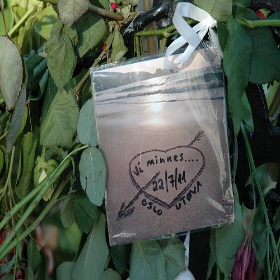 Vi minnes....
22/7/11
OSLO UTØYA